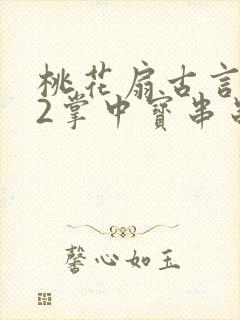 桃花扇古言
2掌中寳串
馨心如玉